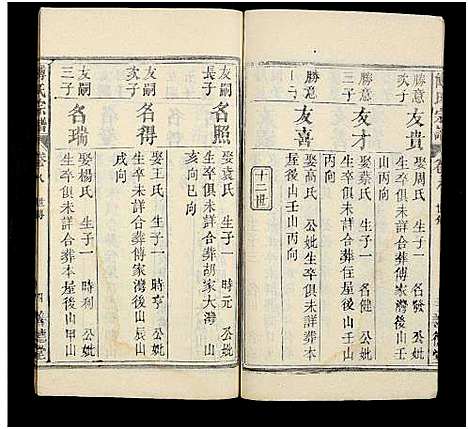 傅氏宗譜
勝意
次子
友貴
娶周氏 生子一 名發 公妣
生卒俱未詳合葬傅家灣後山壬
山丙向
勝意
三子
友才
娶葉氏 生子一 名健 公妣
生卒俱未詳合葬住屋後山壬山
丙向
友喜
娶高氏 公妣生卒俱未詳葬本
屋後山壬山丙向
十二世
友嗣
長子
名照
娶袁氏 生子一 時元 公妣
生卒俱未詳合葬胡家大灣
亥向巳向
友嗣
次子
名得
娶王氏 生子一 時亨 公妣
生卒未詳合葬傅家灣後山辰山
戌向
友嗣
三子
名瑞
娶楊氏 生子一 時利 公妣
生卒俱未詳合葬本屋後山甲山
傅氏宗譜
卷八
四
善德堂